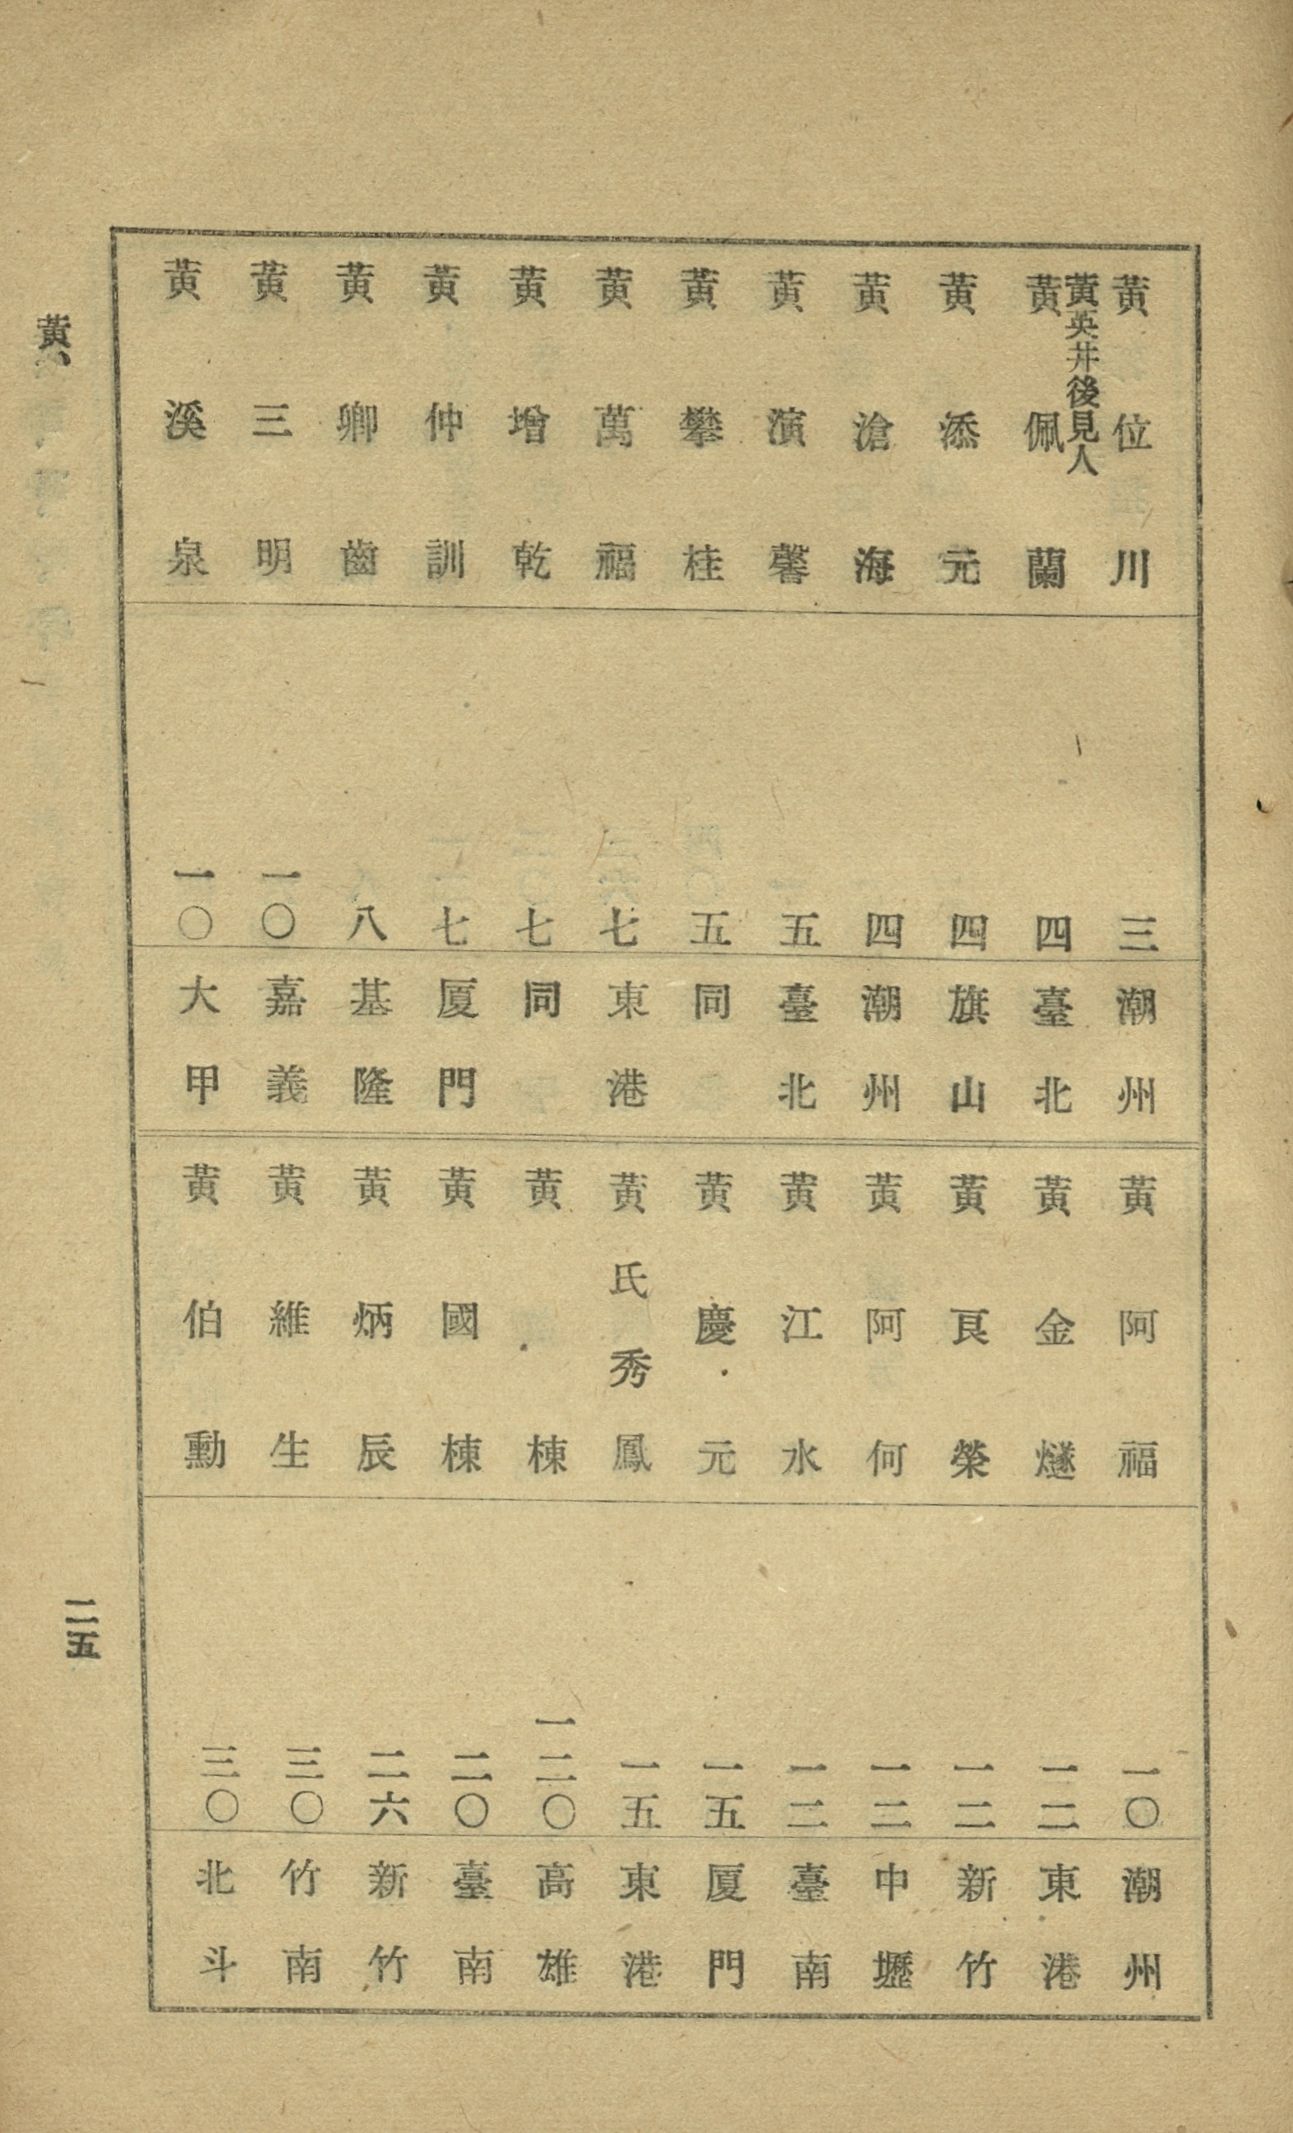 黃位川 三 潮州
黃英井後見人
黃佩蘭 四 臺北
黃添元 四 旗山
黃滄海 四 潮州
黃演馨 五 臺北
黃攀桂 五 同
黃萬福 七 東港
黃增乾 七 同
黃仲訓 七 厦門
黃卿齒 八 基隆
黃三明 一〇 嘉義
黃溪泉 一〇 大甲
黃阿福 一〇 潮州
黃金燧 一二 東港
黃良榮 一二 新竹
黃阿何 一二 中壢
黃江水 一二 臺南
黃慶元 一五 厦門
黃氏秀鳳 一五 東港
黃棟 一二〇 高雄
黃國棟 二〇 臺南
黃炳辰 二六 新竹
黃維生 三〇 竹南
黃伯勳 三〇 北斗
黃
二五